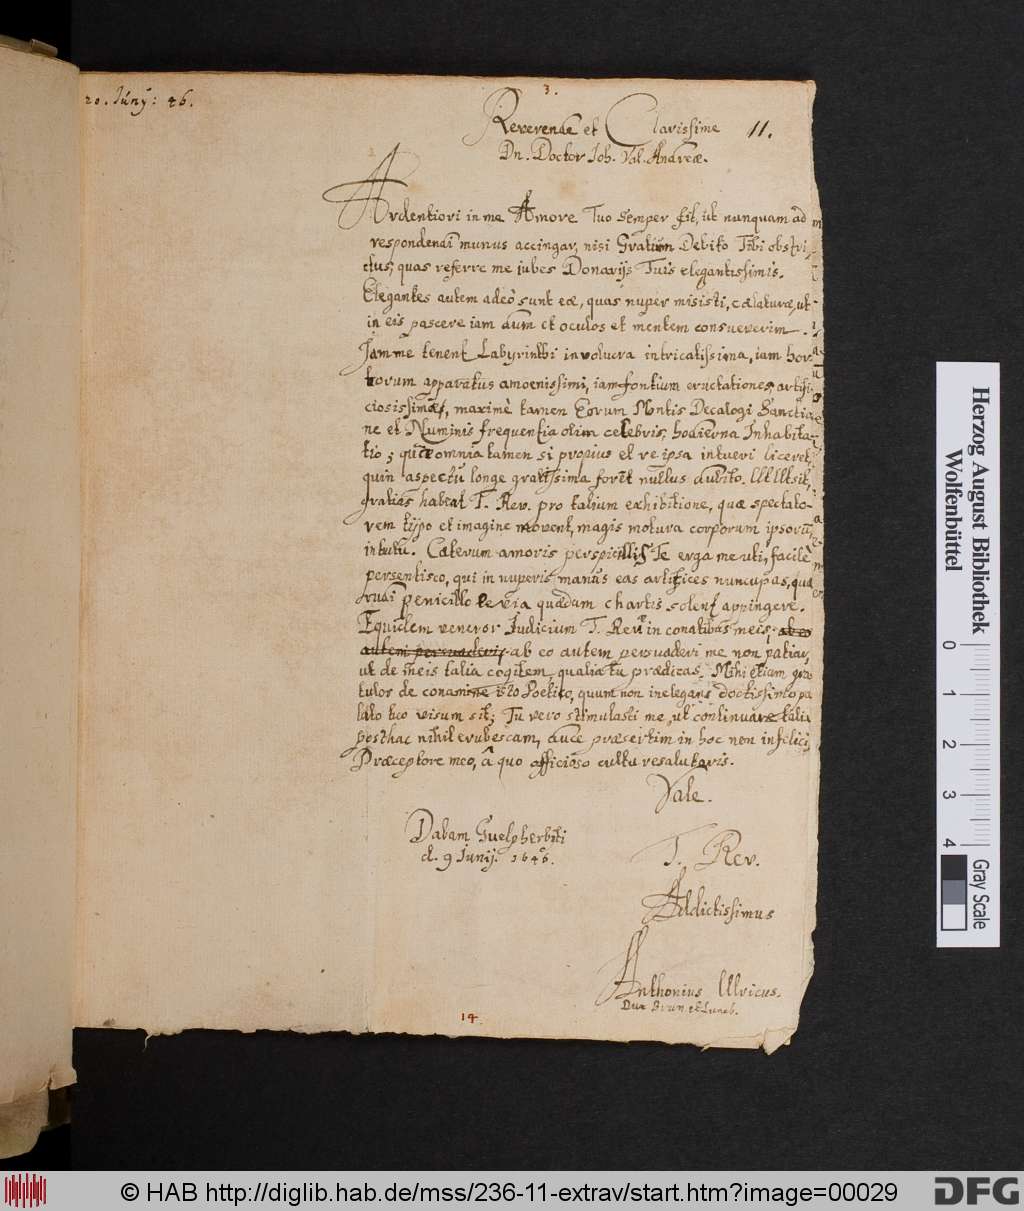 3.
20. Junij: 46.
Reverende et Clarissime 11.
Dn. Doctor Joh. Val. Andreæ.
Ardentiori in me Amore Tuo semper fit, ut nunquam ad
respondendi munus accingar, nisi Gratiûm Debito Tibi obstri
ctus; quas referre me jubes Donarijs Tuis elegantissimis.
Elegantes autem adeò sunt eæ, quas nuper misisti, cælaturæ, ut
in eis pascere iam dum et oculos et mentem consueverim.
Jam me tenent Labyrinthi involucra intricatissima, iam hor
torum apparatus amoenissimi, iam fontium eructationes artifi
ciosissimæ, maximè tamen Eorum Montis Decalogi Sanctia
ne et Numinis frequentia olim celebris, hodierna Inhabita
tio; quæ omnia tamen si propius et re ipsa intueri liceret,
quin aspectu longe gratissima forent nullus dubito. Ut Ut sit,
gratias habeat T. Rev. pro talium exhibitione, quæ spectato
rem typo et imagine movent, magis motura corporum ipsorū
intuitu. Cæterum amoris perspicillis Te erga me uti, facilè
persentisco, qui in nuperis manus eas artifices nuncupas, quæ
rudi penicillo levia quædam chartis solent appingere.
Equidem veneror Judicium T. Rev. in conatibus meis; ab eo
autem persuaderi ab eo autem persuaderi me non patiar,
ut de meis talia cogitem, qualia tu prædicas. Mihi etiam gra
tulor de conamine isto Poetico, quum non inelegans doctissimo pa
lato tuo visum sit; Tu vero stimulasti me, ut continuare talia
posthac nihil erubescam, duce præsertim in hoc non infelici
Præceptore meo, â quo officioso cultu resalutaris.
Vale.
Dabam Guelpherbiti
d. 9 Junij. 1646.
T. Rev.
Addictissimus
Anthonius Ulricus.
Dux Brun et Luneb.
14.
Herzog August Bibliothek
Wolfenbüttel
0 1 2 3 4
Gray Scale
© HAB http://diglib.hab.de/mss/236-11-extrav/start.htm?image=00029
DFG